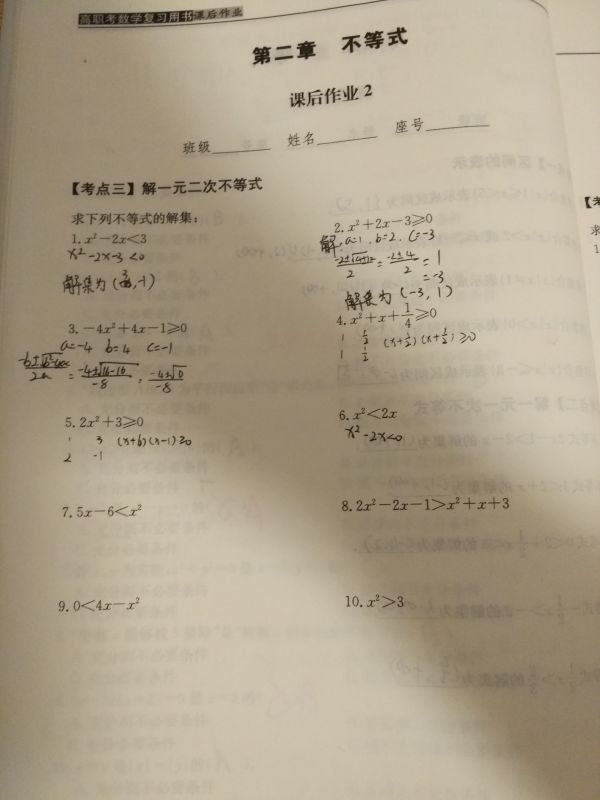 高职考数学复习用书课后作业
第二章 不等式
课后作业 2
班级 姓名 座号
【考点三】解一元二次不等式
求下列不等式的解集：
1. x²-2x<3
x²-2x-3<0
解集为 ( ,-1)
2. x²+2x-3≥0
解: a=1. b=2. c=-3
=-2±4/2=1
=-3
解集为 (-3, 1)
3. -4x²+4x-1≥0
a=-4 b=4 c=-1
=-4±√16-16/-8=-4±√0/-8
4. x²+x+1/4≥0
1 1/2 (x+1/2)(x+1/2)≥0
1 1/2
5. 2x²+3≥0
1 3 (x+6)(x-1)≥0
2 -1
6. x²<2x
x²-2x<0
7. 5x-6<x²
8. 2x²-2x-1>x²+x+3
9. 0<4x-x²
10. x²>3